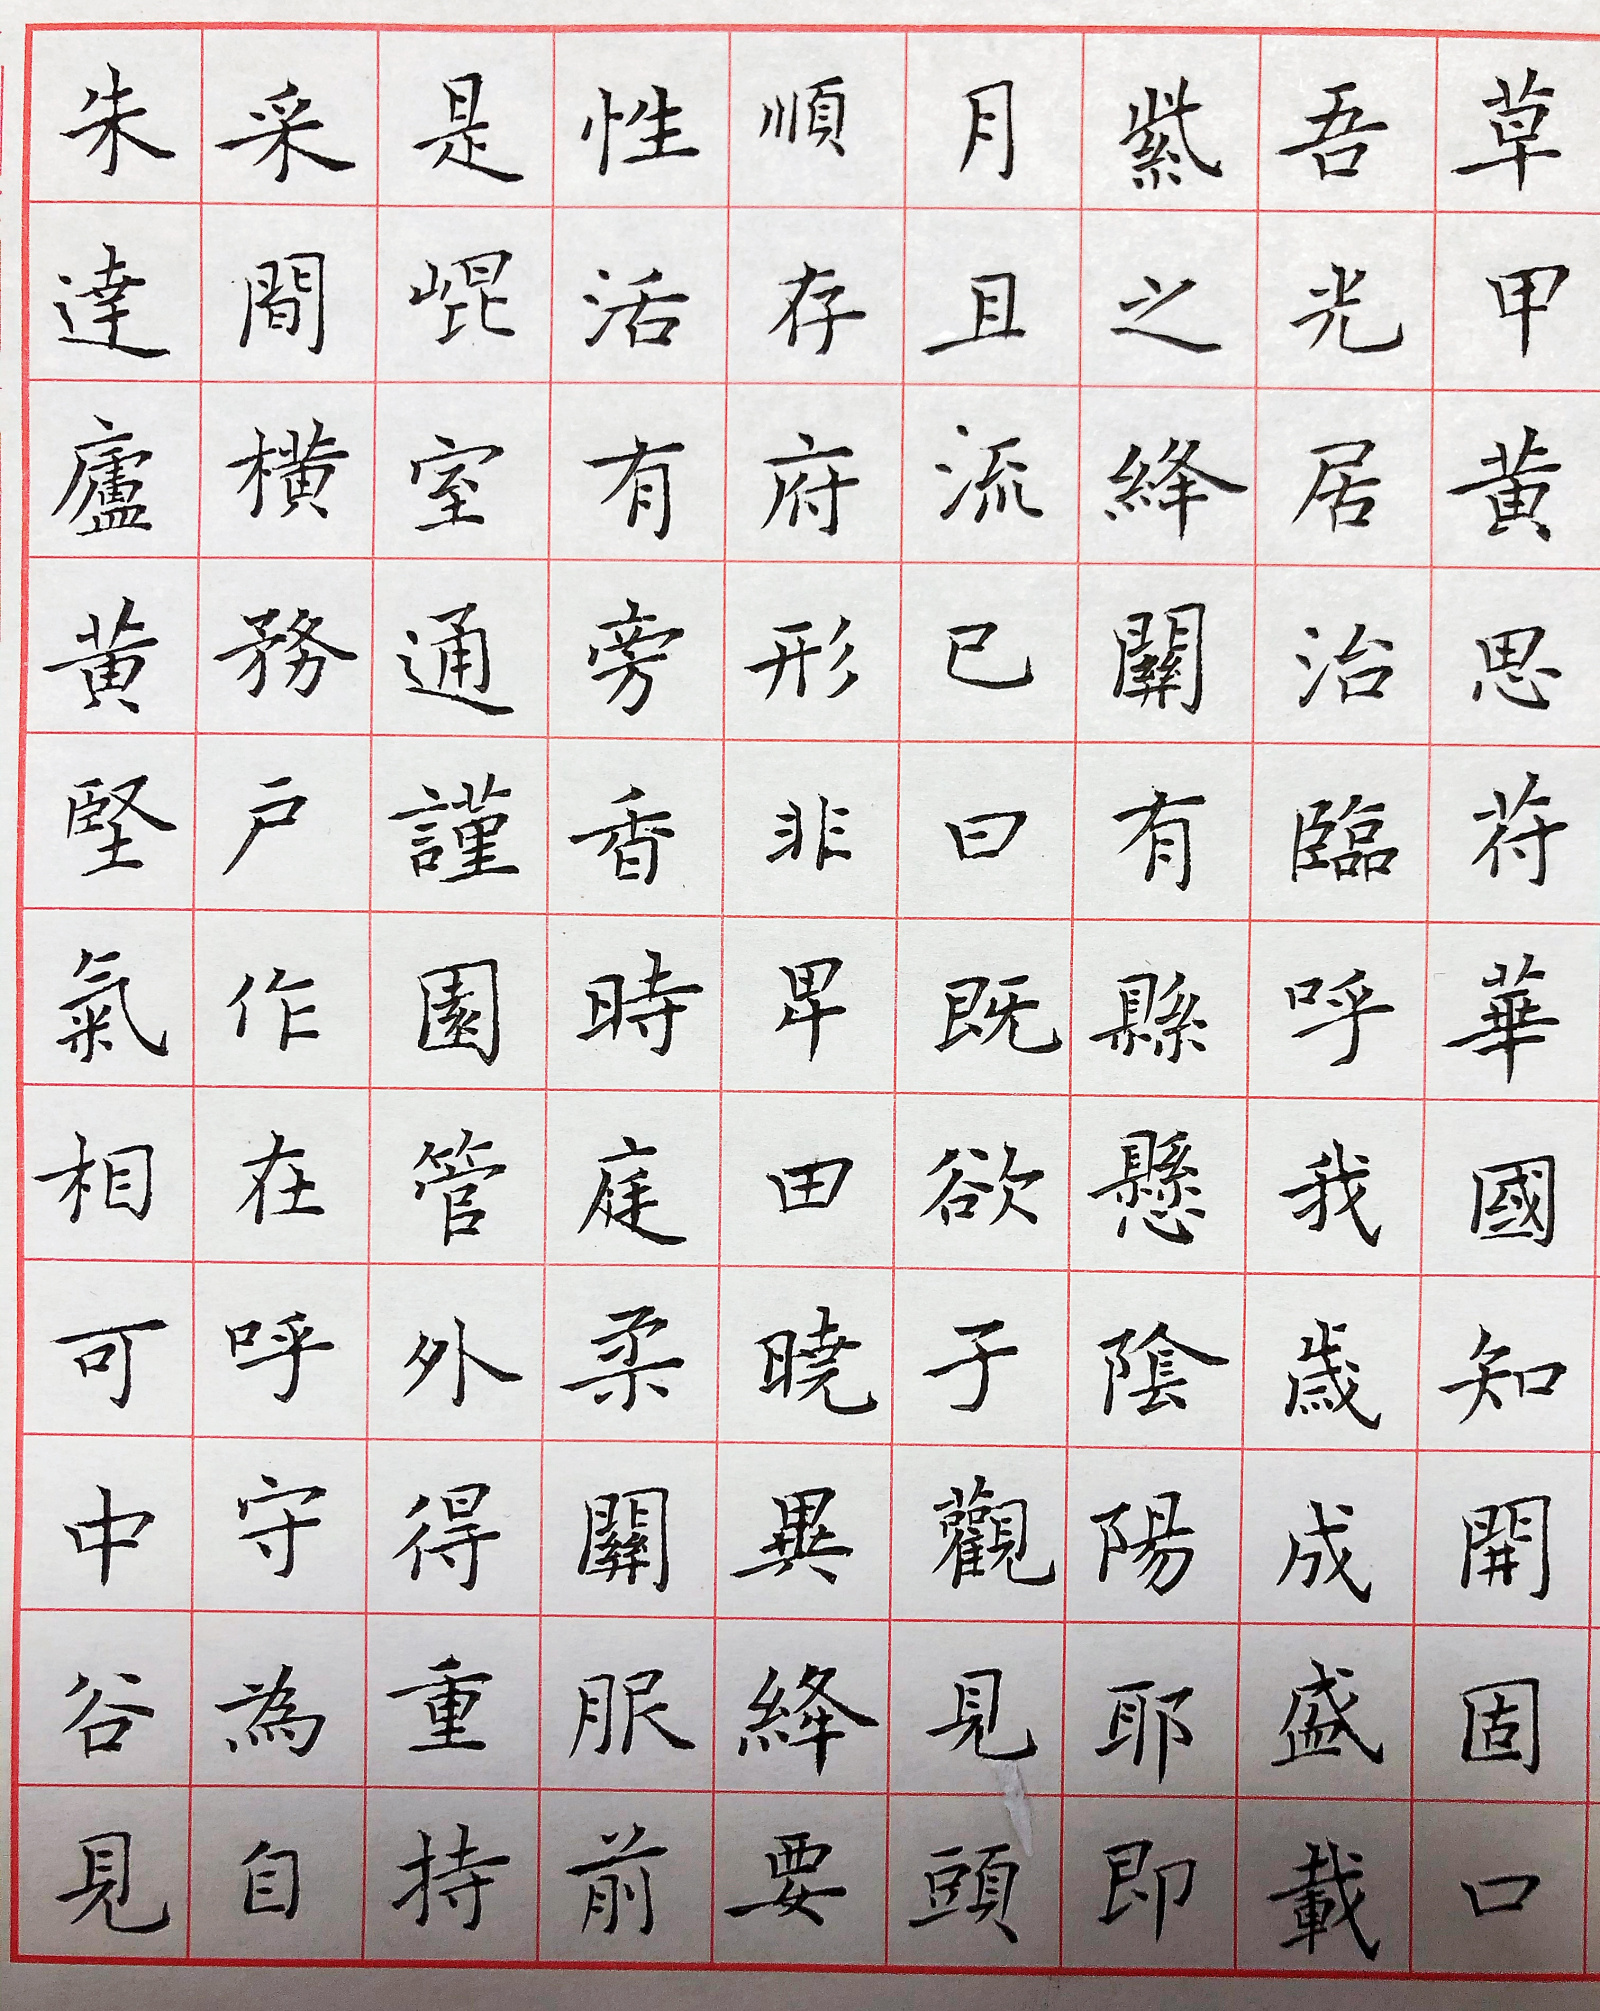 草甲黃思苻華國知開固口
吾光居治臨呼我歲成盛載
紫之絳關有縣懸陰陽耶即
月且流已曰既欲于觀見頭
順存府形非卑田曉異絳要
性活有旁香時庭柔關服前
是崐室通謹園管外得重持
采間橫務户作在呼守為自
朱達廬黃堅氣相可中谷見